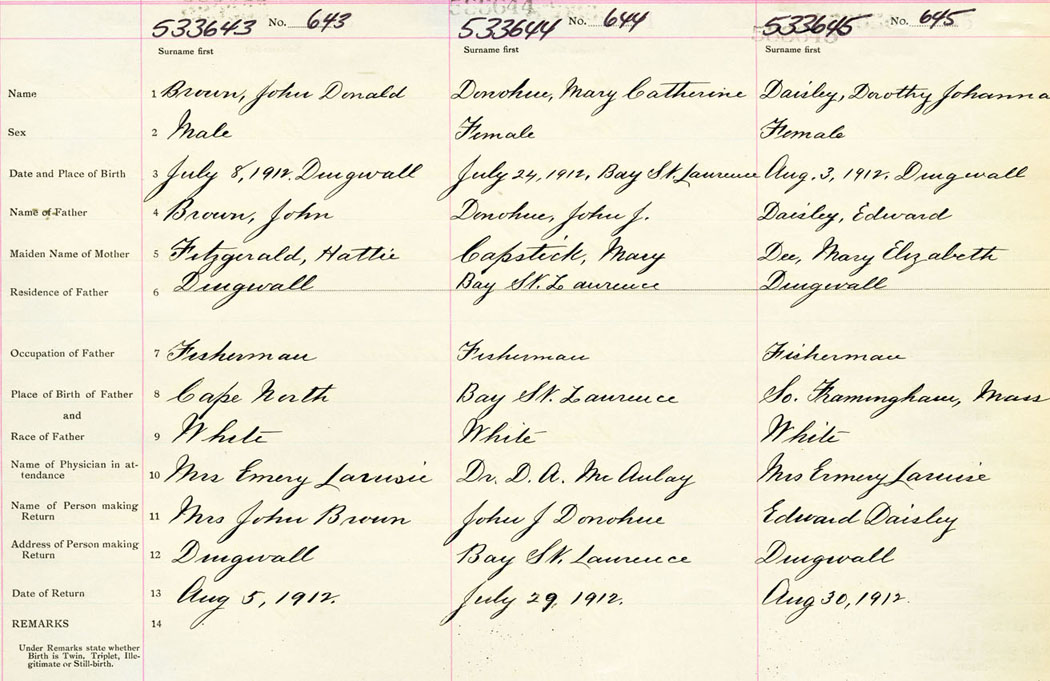 533643 No. 643 533644 No. 644 533645 No. 645
Surname first Surname first Surname first
Name 1 Brown, John Donald Donohue, Mary Catherine Daisley, Dorothy Johanna
Sex 2 Male Female Female
Date and Place of Birth 3 July 8, 1912. Dingwall July 24, 1912, Bay St. Laurence Aug. 3, 1912, Dingwall
Name of Father 4 Brown, John Donohue, John J. Daisley, Edward
Maiden Name of Mother 5 Fitzgerald, Hattie Capstick, Mary Dee, Mary Elizabeth
Residence of Father 6 Dingwall Bay St. Laurence Dingwall
Occupation of Father 7 Fisherman Fisherman Fisherman
Place of Birth of Father 8 Cape North Bay St. Laurence So. Framingham, Mass
and
Race of Father 9 White White White
Name of Physician in at-
tendance 10 Mrs Emery Dr. D. A. McAulay Mrs Ermery
Name of Person making
Return 11 Mrs John Brown John J Donohue Edward Daisley
Address of Person making
Return 12 Dingwall Bay St. Laurence Dingwall
Date of Return 13 Aug 5, 1912. July 29, 1912. Aug 30, 1912.
REMARKS 14
Under Remarks state whether
Birth is Twin, Triplet, Ille-
gitimate or Still-birth.